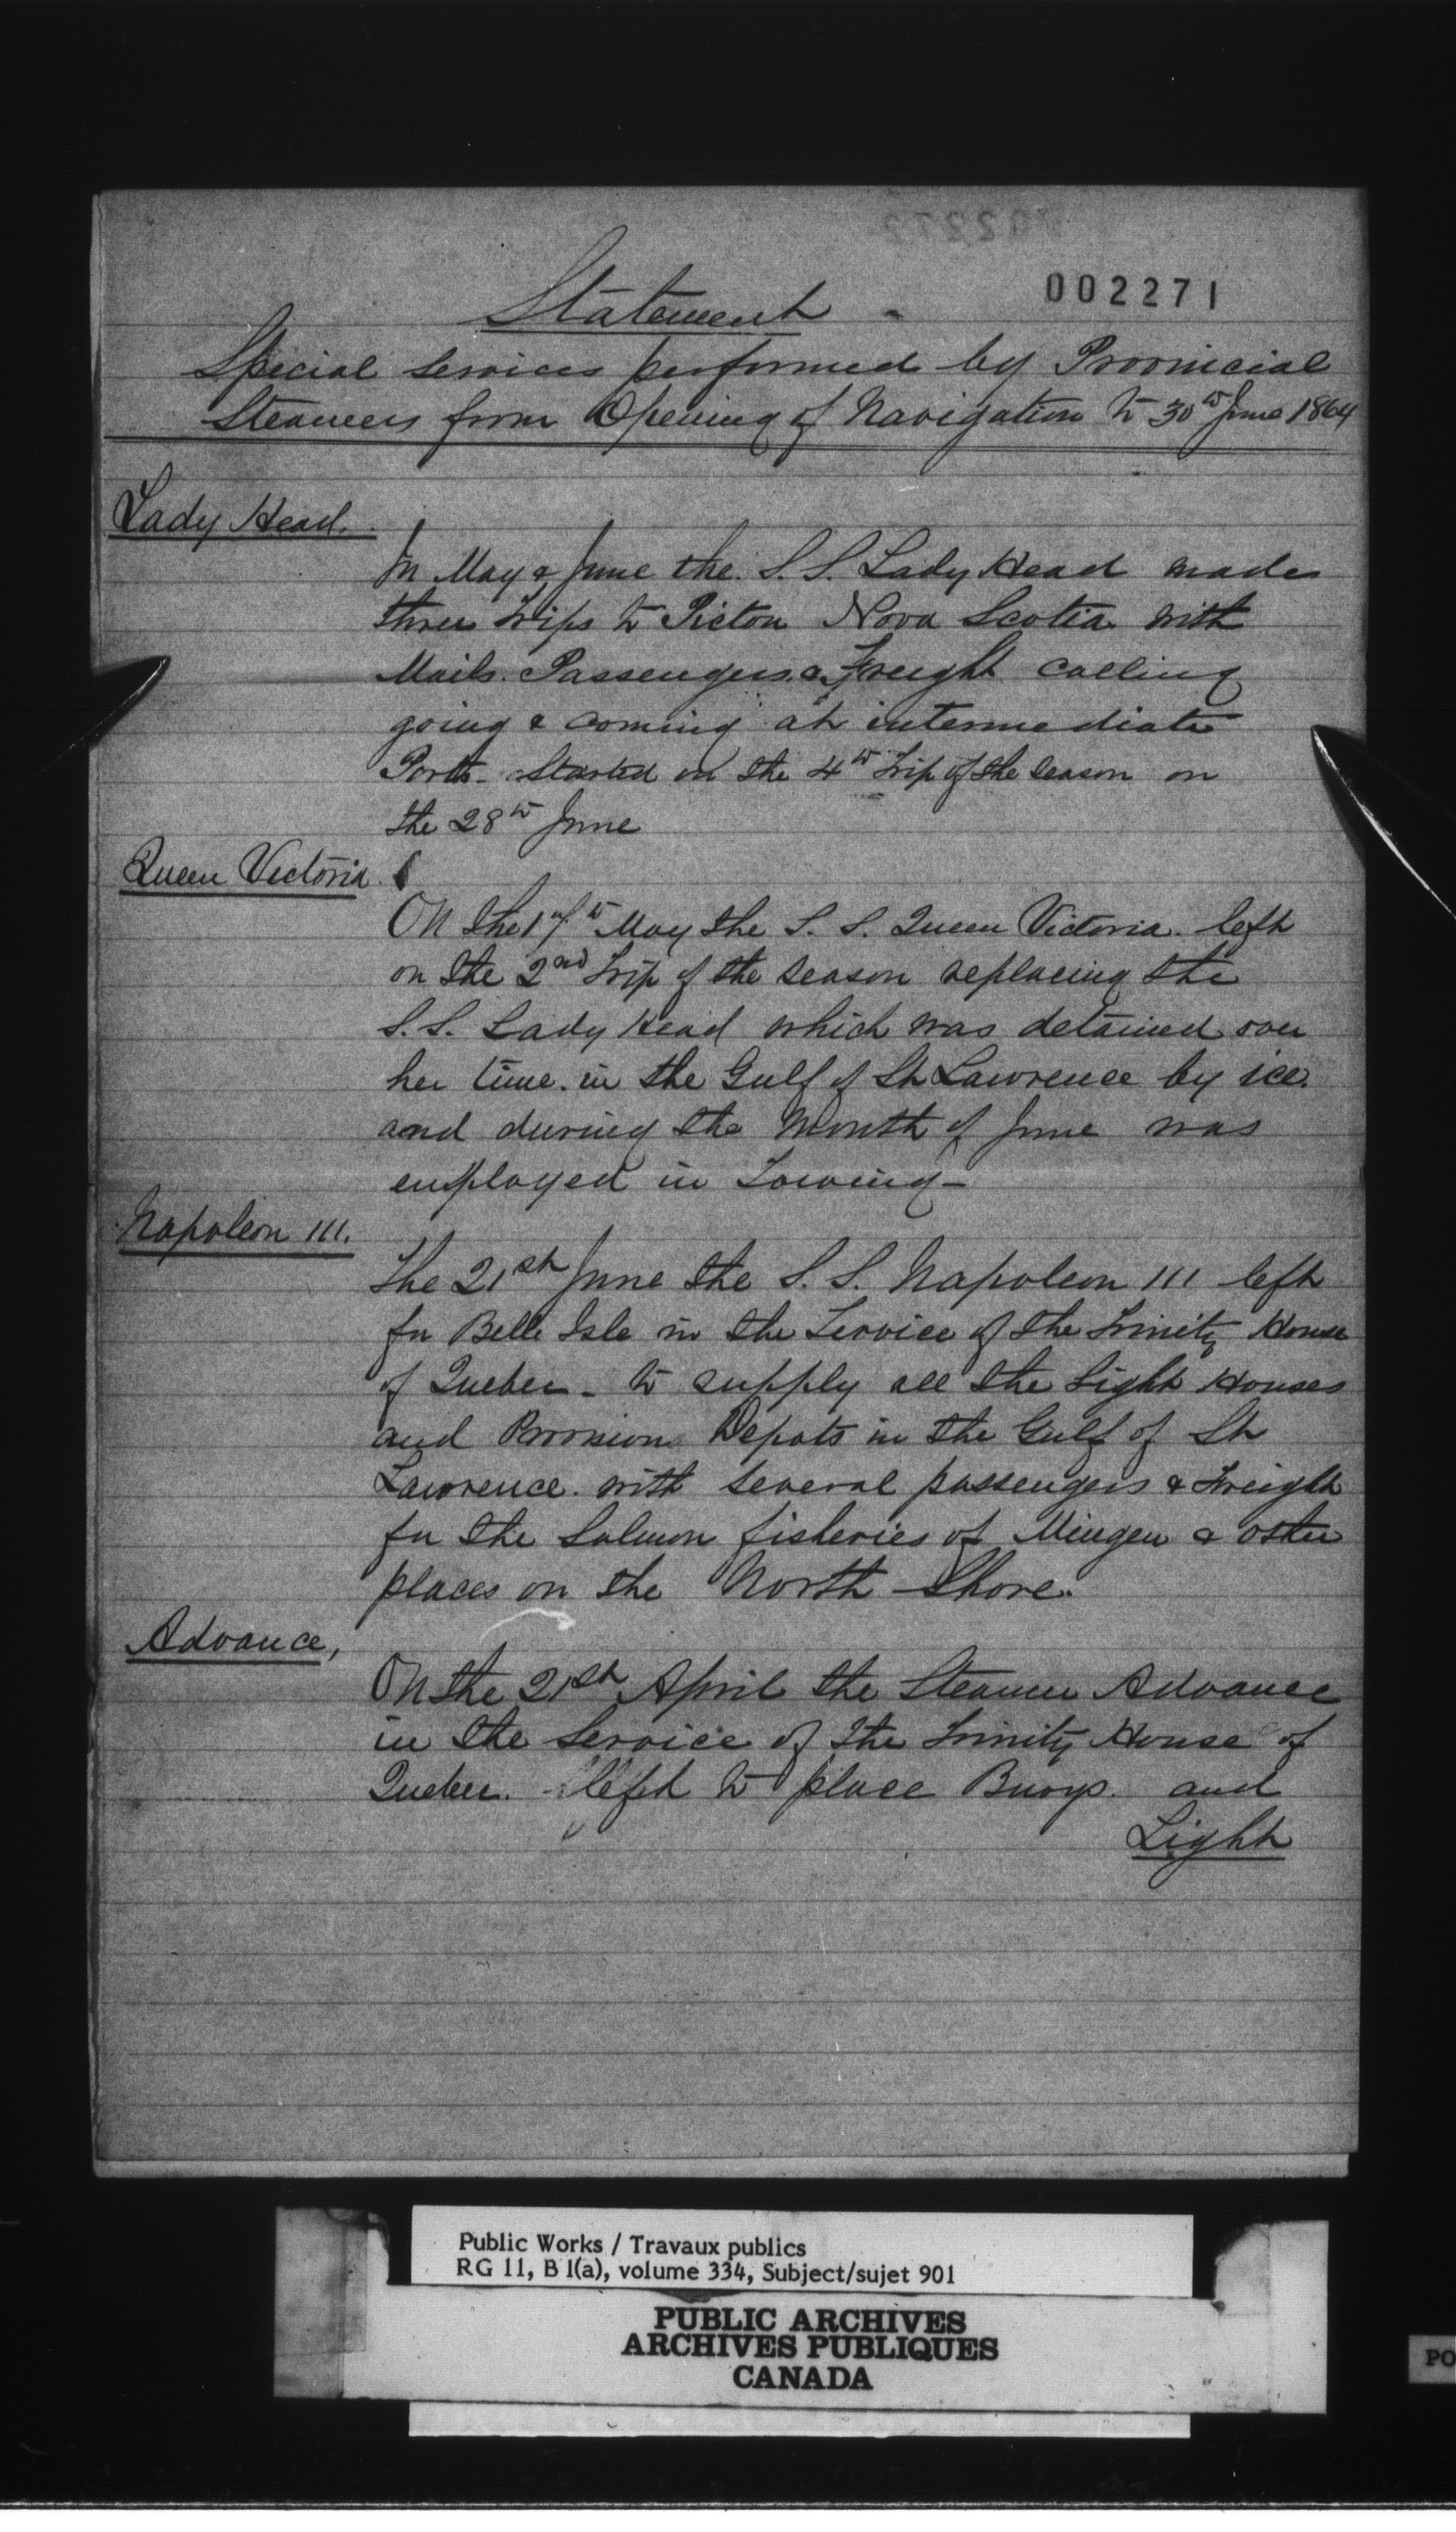 002272
002271
Statement
Special services performed by Provincial
Steamers from Opening of Navigation to 30th June 1864
Lady Head.
In May & June the S.S. Lady Head made
three trips to Pictou Nova Scotia with
Mails. Passengers. & Freight calling
going & coming at intermediate
Ports - Started on the 4th trip of the season on
the 28th June
Queen Victoria.
On the 17th May the S. S. Queen Victoria. left
on the 2nd trip of the season replacing the
S.S. Lady Head which was detained over
her time. in the Gulf of St Lawrence by ice.
and during the Month of June was
employed in Towing -
Napoleon III.
The 21st June the S. S. Napoleon III left
for Belle Isle in the Service of the Trinity House
of Quebec - to supply all the Light Houses
and Provision Depots in the Gulf of St
Lawrence. with several passengers & Freight
for the Salmon fisheries of Mingen & other
places on the North Shore.
Advance,
On the 21st April the Steamer Advance
in the Service of the Trinity House of
Quebec. - left to place Buoys. and
Light
Public Works / Travaux publics
RG 11, B 1(a), volume 334, Subject/sujet 901
PUBLIC ARCHIVES
ARCHIVES PUBLIQUES
CANADA
PO